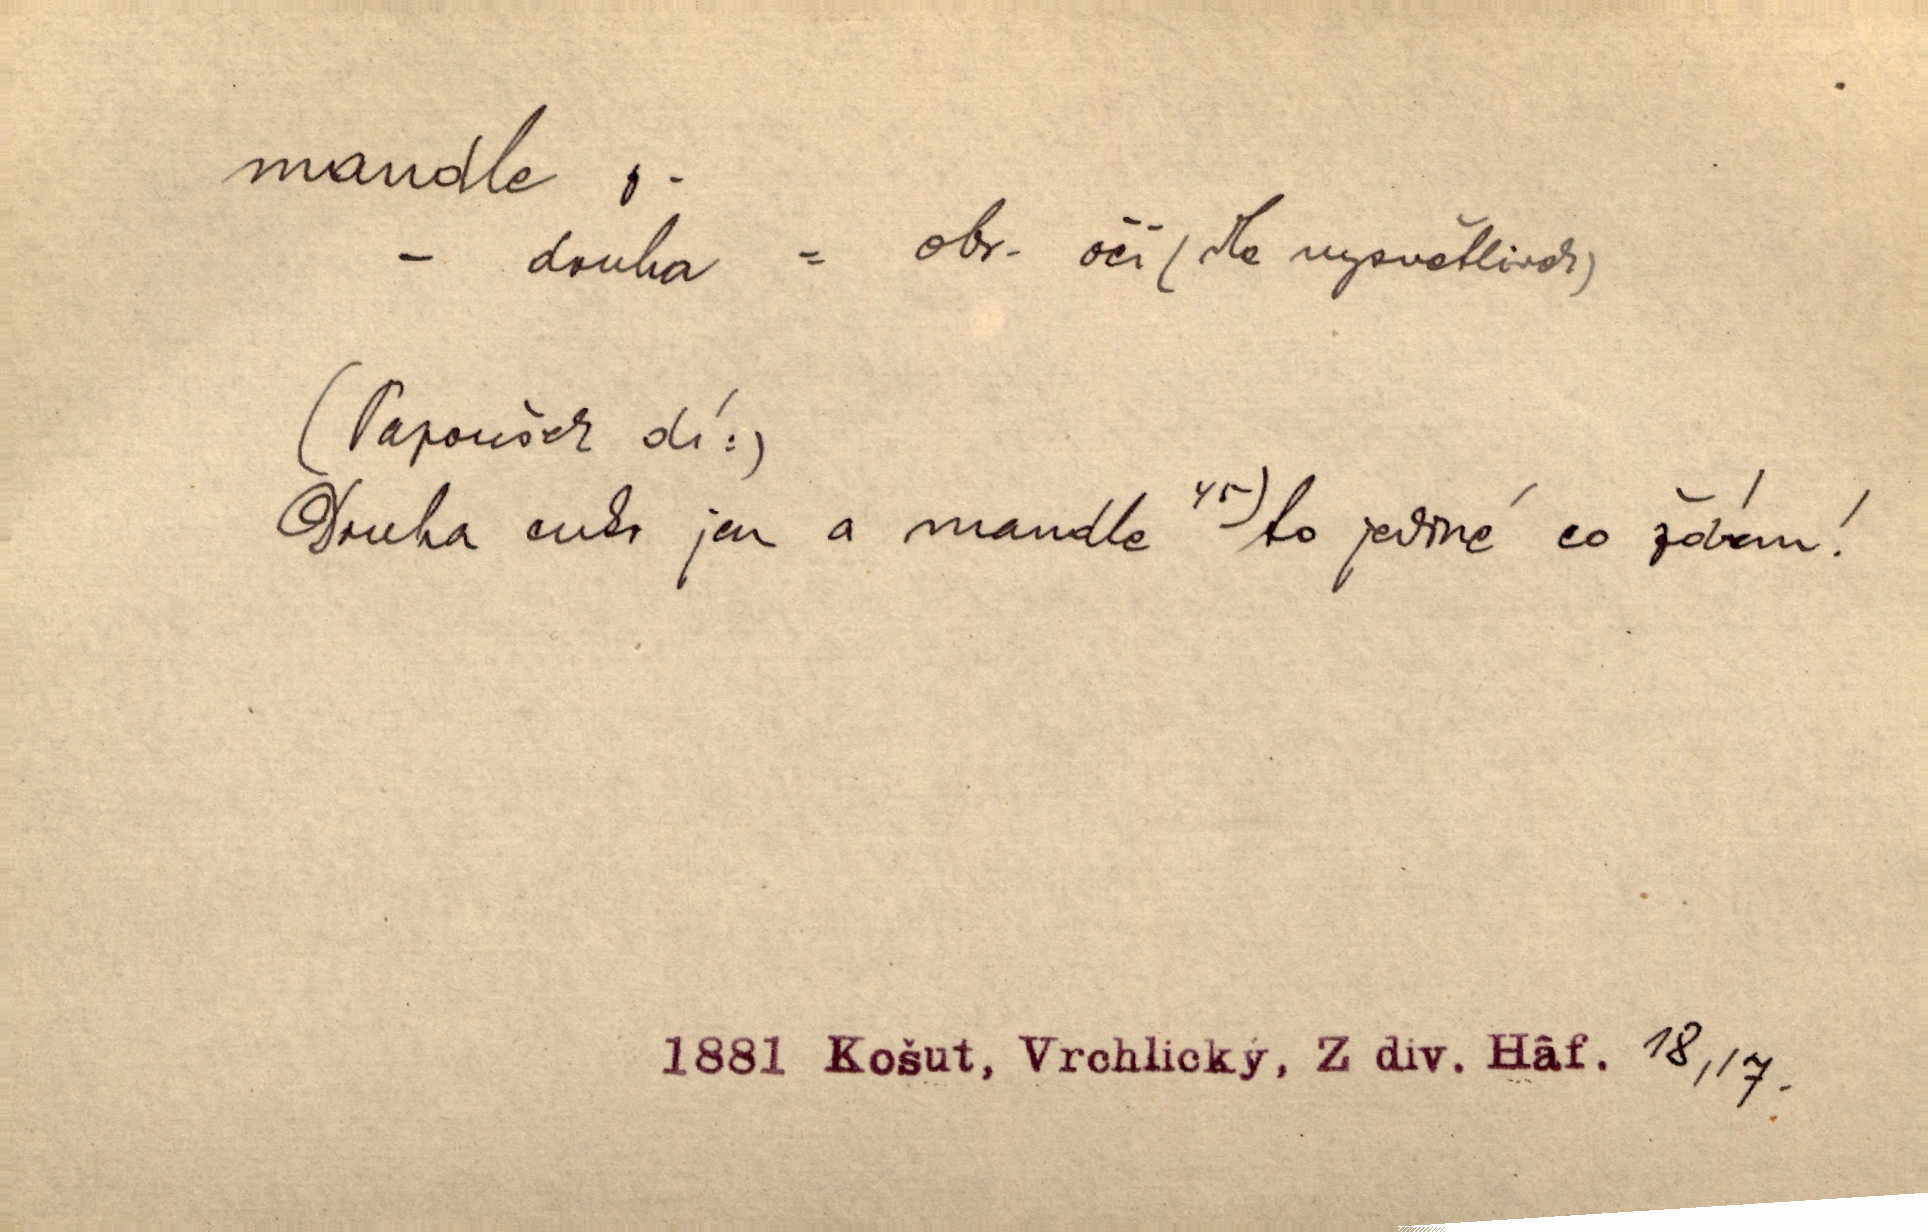 mandle, -
- druha = obr. oči (dle vysvětlivek)
(Papoušek dí:)
Druha cukr jen a mandle 45) to jediné co žádám!
1881 Košut, Vrchlický, Z div. Hâf. 18,17.